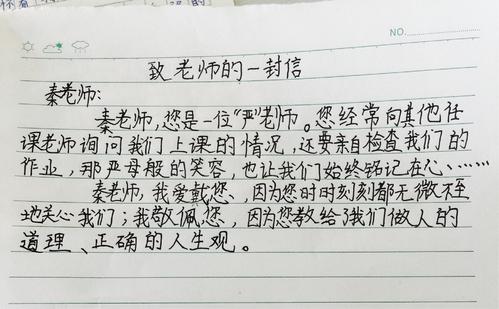 NO.
致老师的一封信
秦老师:
秦老师,您是一位"严"老师。您经常向其他任
课老师询问我们上课的情况,还要亲自检查我们的
作业,那严母般的笑容,也让我们始终铭记在心、……
秦老师,我爱戴您、,因为您时时刻刻都无微不至
地关心我们;我敬佩您,因为您教给了我们做人的
道理、正确的人生观。